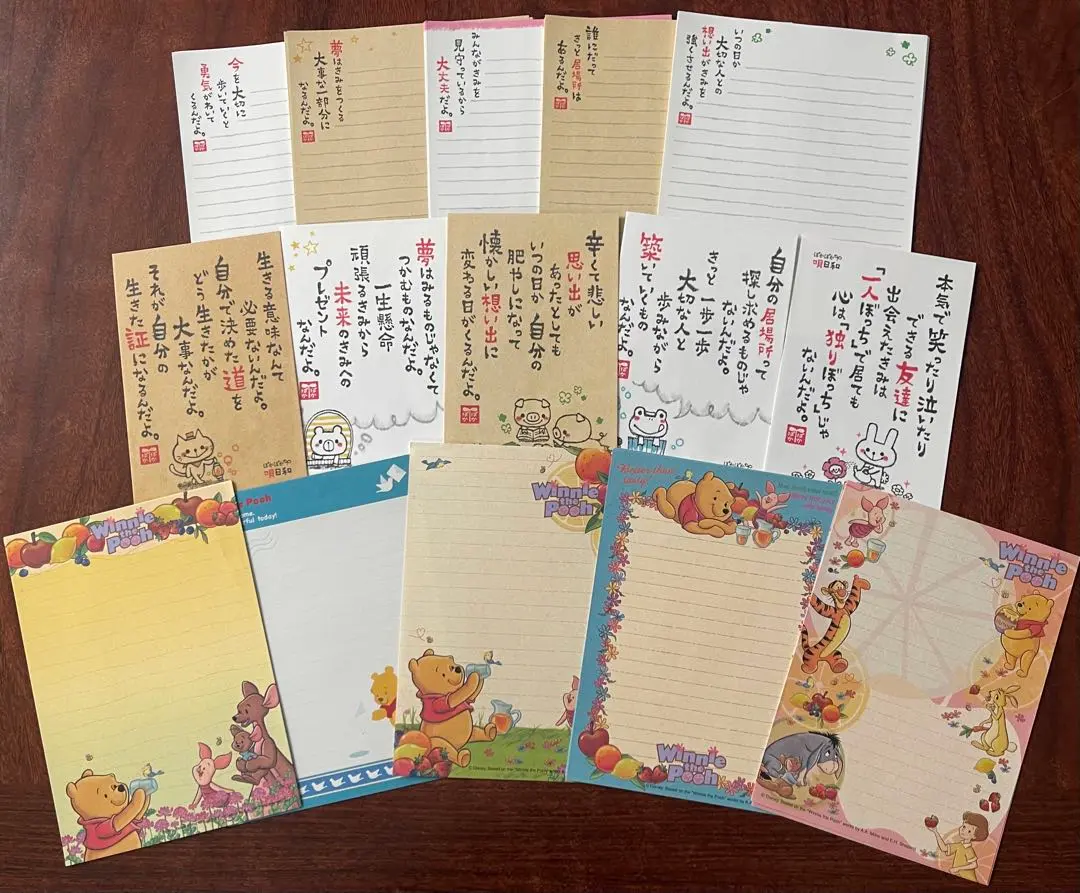 今を大切に
歩いていくと
勇気がわいて
くるんだよ。
夢はきみをつくる
大事な一部分に
なるんだよ。
みんながきみを
見守っているから
大丈夫だよ。
誰にだって
きっと居場所は
あるんだよ。
いつの日か
大切な人との
想い出がきみを
強くさせるんだよ。
生きる意味なんて
必要ないんだよ。
自分で決めた道を
どう生きたかが
大事なんだよ。
それが自分の
生きた証になるんだよ。
ぱかぱかの
明日和
夢はみるものじゃなくて
つかむものなんだよ。
一生懸命
頑張るきみから
未来のきみへの
プレゼント
なんだよ。
辛くて悲しい
思い出が
あったとしても
いつの日か自分の
肥やしになって
懐かしい想い出に
変わる日がくるんだよ。
自分の居場所って
探し求めるものじゃ
ないんだよ。
きっと一歩一歩
大切な人と
歩みながら
築いていくもの
なんだよ。
ぱかぱかの
明日和
本気で笑ったり泣いたり
できる友達に
出会えたきみは
「一人ぼっち」で居ても
心は「独りぼっち」じゃ
ないんだよ。
Winnie
the
Pooh
Pooh
ful today!
Winnie
the
Pooh
© Disney. Based on the "Winnie the Pooh" works
Winnie
the
Pooh
© Disney. Based on the "Winnie the Pooh" works by A.
Winnie
the
Pooh
© Disney. Based on the "Winnie the Pooh" works by A.A. Milne and E.H. Shepard.